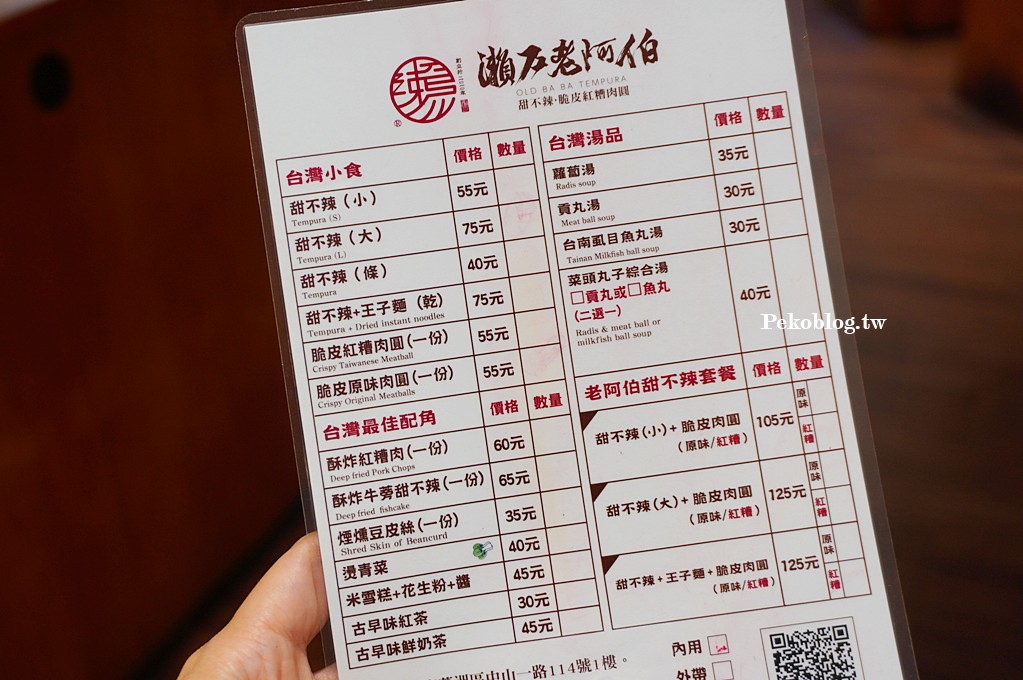 瀨石老阿伯
OLD BA BA TEMPURA
甜不辣·脆皮紅糟肉圓
台灣小食 價格 數量
甜不辣（小） 55元
Tempura (S)
甜不辣（大） 75元
Tempura (L)
甜不辣（條） 40元
Tempura
甜不辣+王子麵（乾） 75元
Tempura + Dried instant noodles
脆皮紅糟肉圓(一份) 55元
Crispy Taiwanese Meatball
脆皮原味肉圓(一份) 55元
Crispy Original Meatballs
台灣最佳配角 價格 數量
酥炸紅糟肉(一份) 60元
Deep fried Pork Chops
酥炸牛蒡甜不辣(一份) 65元
Deep fried fishcake
煙燻豆皮絲(一份) 35元
Shred Skin of Beancurd
燙青菜 40元
米雪糕+花生粉+醬 45元
古早味紅茶 30元
古早味鮮奶茶 45元
台灣湯品 價格 數量
蘿蔔湯 35元
Radis soup
貢丸湯 30元
Meat ball soup
台南虱目魚丸湯 30元
Tainan Milkfish ball soup
菜頭丸子綜合湯 40元
□貢丸或□魚丸
(二選一)
Radis & meat ball or
milkfish ball soup
老阿伯甜不辣套餐 價格 數量
甜不辣(小)+脆皮肉圓 105元 原味
(原味/紅糟) 紅糟
甜不辣(大)+脆皮肉圓 125元 原味
(原味/紅糟) 紅糟
甜不辣+王子麵+脆皮肉圓 125元 原味
(原味/紅糟) 紅糟
區中山一路114號1樓。
內用
外帶
Pekoblog.tw